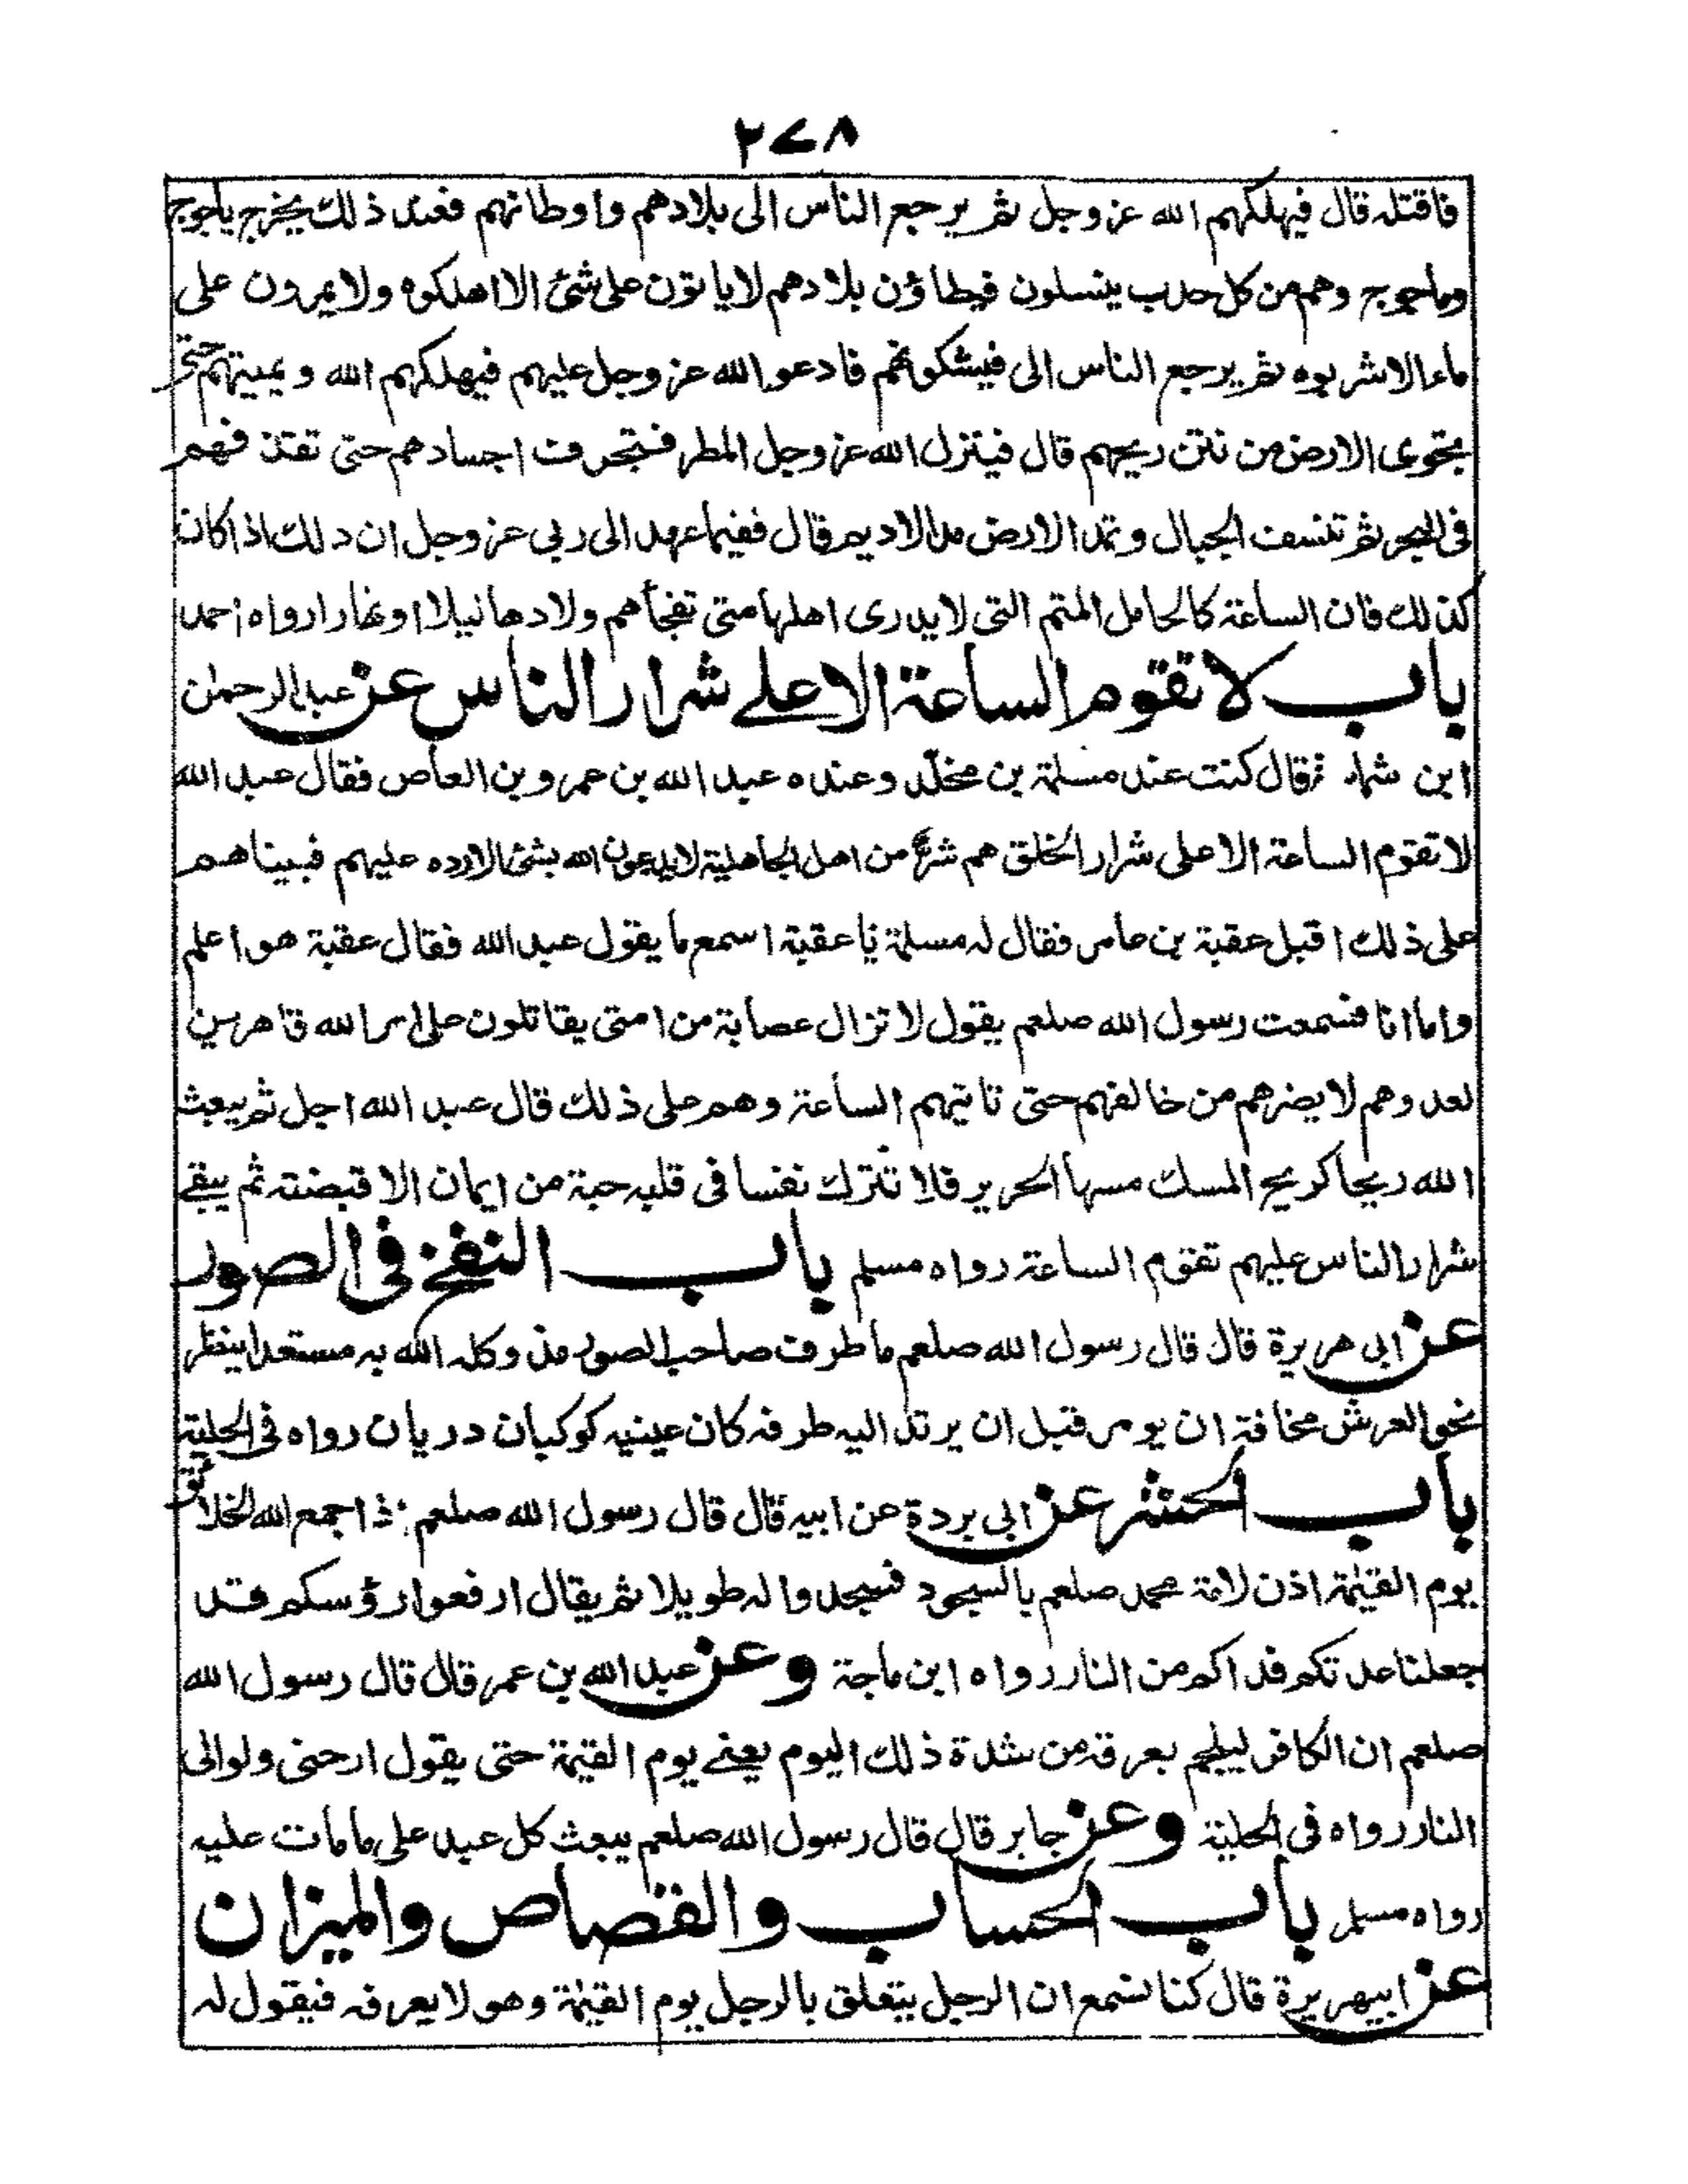 ٢٧٨
فاقتله قال فيهلكهم الله عز وجل ثم يرجع الناس الى بلادهم واوطانهم فعند ذلك يخرج ياجوج
وماجوج وهم من كل حدب ينسلون فيطاؤن بلادهم لاياتون على شئ الا اهلكوه ولا يمرون على
ماء الا شربوه ثم يرجع الناس الى فيشكونهم فادعوا الله عز وجل عليهم فيهلكهم الله ويميتهم حتى
تجوى الارض من نتن ريحهم قال فينزل الله عز وجل المطر فتجرف اجسادهم حتى تقذفهم
فى البحر ثم تنسف الجبال وتمد الارض مد الاديم قال ففيما عهد الى ربى عز وجل ان ذلك اذا كان
كذلك فان الساعة كالحامل المتم التى لا يدرى اهلها متى تفجأهم ولادها ليلا او نهارا رواه احمد
باب لا تقوم الساعة الا على شرار الناس عن عبد الرحمن
ابن شماسة قال كنت عند مسلمة بن مخلّد وعنده عبد الله بن عمرو بن العاص فقال عبد الله
لا تقوم الساعة الا على شرار الخلق هم شرٌّ من اهل الجاهلية لا يدعون الله بشئ الا رده عليهم فبينا هم
على ذلك اقبل عقبة بن عامر فقال له مسلمة يا عقبة اسمع ما يقول عبد الله فقال عقبة هو اعلم
واما انا فسمعت رسول الله صلعم يقول لا تزال عصابة من امتى يقاتلون على امر الله قاهرين
لعدوهم لا يضرهم من خالفهم حتى تاتيهم الساعة وهم على ذلك قال عبد الله اجل ثم يبعث
الله ريحا كريح المسك مسها الحرير فلا تترك نفسا فى قلبه حبة من ايمان الا قبضته ثم يبقى
شرار الناس عليهم تقوم الساعة رواه مسلم باب النفخ فى الصور
عن ابى هريرة قال قال رسول الله صلعم ما طرف صاحب الصور مذ وكله الله به مستعدا ينظر
نحو العرش مخافة ان يومر قبل ان يرتد اليه طرفه كان عينيه كوكبان دريان رواه فى الحلية
باب الحشر عن ابى بردة عن ابيه قال قال رسول الله صلعم اذا جمع الله الخلائق
يوم القيٰمة اذن لامة محمد صلعم بالسجود فسجدوا له طويلا ثم يقال ارفعوا رؤسكم قد
جعلنا عدتكم فداكم من النار رواه ابن ماجة وعن عبد الله بن عمر قال قال رسول الله
صلعم ان الكافر ليلجم بعرقه من شدة ذلك اليوم يعنے يوم القيٰمة حتى يقول ارحنى ولو الى
النار رواه فى الحلية وعن جابر قال قال رسول الله صلعم يبعث كل عبد على ما مات عليه
رواه مسلم باب الحساب والقصاص والميزان
عن ابيهريرة قال كنا نسمع ان الرجل يتعلق بالرجل يوم القيٰمة وهو لا يعرفه فيقول له